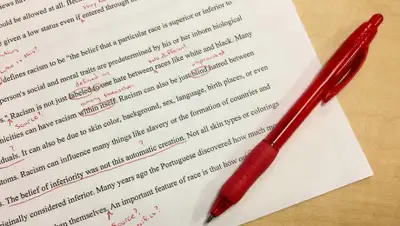 should be allowed at all. Because
given a low status even if entered through
defines racism to be "the belief that a particular race is superior or inferior to
person's social and moral traits are predetermined by his or her inborn biological
." Racism is not just labeled to one hate between races like white and black. Many
nicities can have racism within itself. Racism can also be just blind hatred between
Source?
duals. It can also be due to skin color, background, sex, language, birth places, or even
toms. Racism can influence many things like slavery or the formation of countries and
s. The belief of inferiority was not this automatic creation. Not all skin types or colorings
originally considered inferior. Many years ago the Portuguese discovered how much
than themselves. An important feature of race is that how
Source?